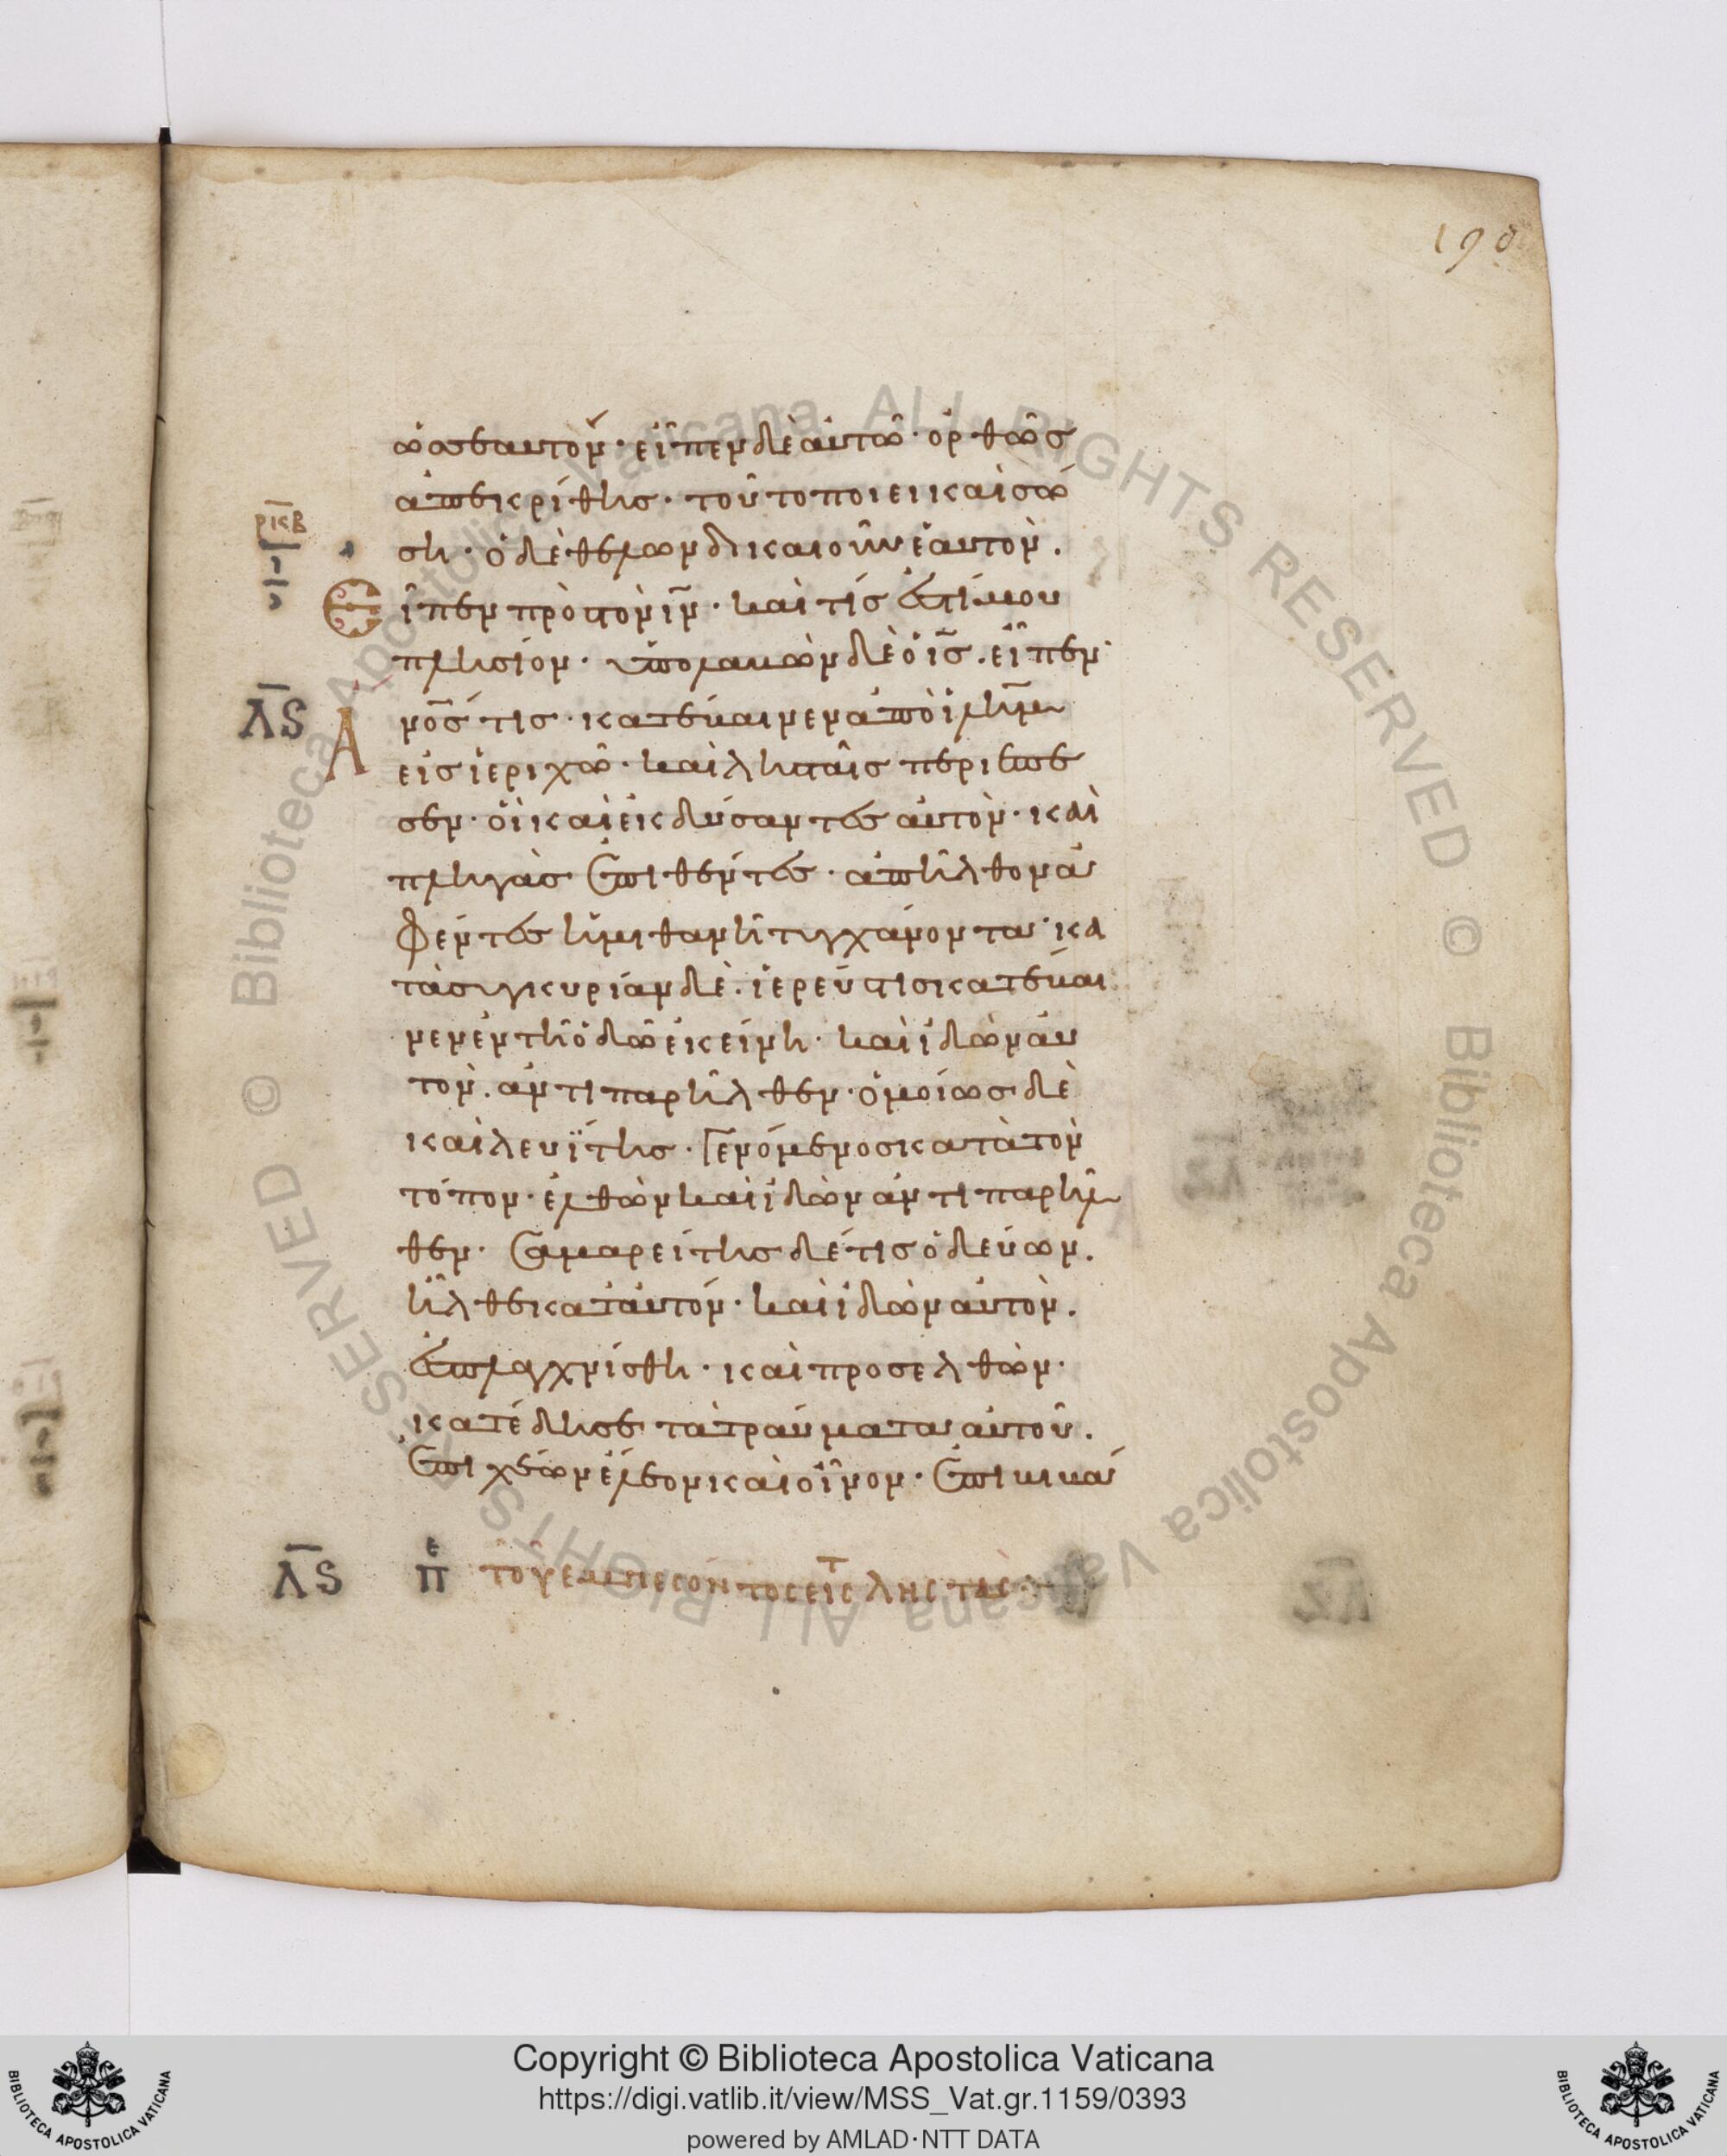 190
ὡσεαυτόν· εἶπεν δὲ αὐτῶ· ὀρθῶσ
ἀπεκρίθησ· τοῦτο ποιει καὶ σώ
ρκβ
ση· ὁ δὲ θέλων δικαιοῦν ἑαυτὸν.
Εἶπεν πρὸσ τὸν ι̅ν̅· καὶ τίσ ἐστί μου
πλησίον· ὑπολαβὼν δὲ ὁ ι̅σ̅. εἶπεν·
λ̅ϛ̅
Α̅ν̅ο̅ σ τισ· κατέβαινεν ἀπὸ ἰλη̅μ
εἰσ ἱεριχῶ· καὶ λησταῖσ περιέπε
σεν· οἳ καὶ ἐκδύσαντεσ αὐτὸν· καὶ
πληγὰσ ἐπιθέντεσ· ἀπῆλθον ἀ
φέντεσ ἡμιθανῆ τυγχάνοντα· κα
τὰ συγκυρίαν δὲ. ἱερεύσ τισ κατέβαι
νεν ἐν τῆ ὁδῶ ἐκείνη· καὶ ἰδὼν αὐ
τὸν. ἀντιπαρῆλθεν· ὁμοίωσ δὲ
καὶ λευΐτησ· γενόμενοσ κατὰ τὸν
τόπον· ἐλθὼν καὶ ἰδὼν ἀντιπαρῆλ
θεν· Σαμαρείτησ δέ τισ ὁδεύων.
ἦλθε κατ αὐτόν· καὶ ἰδὼν αὐτὸν.
ἐσπλαγχνίσθη· καὶ προσελθὼν·
κατέδησε τὰ τραύματα αὐτοῦ.
ἐπιχέων ἔλεον καὶ οἶνον· ἐπιβιβά
λ̅ϛ̅ πε τοῦ ἐμπεσόντοσ εἰσ τ λησ τὰσ
Copyright © Biblioteca Apostolica Vaticana
https://digi.vatlib.it/view/MSS_Vat.gr.1159/0393
powered by AMLAD·NTT DATA
BIBLIOTECA APOSTOLICA VATICANA
BIBLIOTECA APOSTOLICA VATICANA
© Biblioteca Apostolica Vaticana ALL RIGHTS RESERVED © Biblioteca Apostolica Vaticana ALL RIGHTS RESERVED